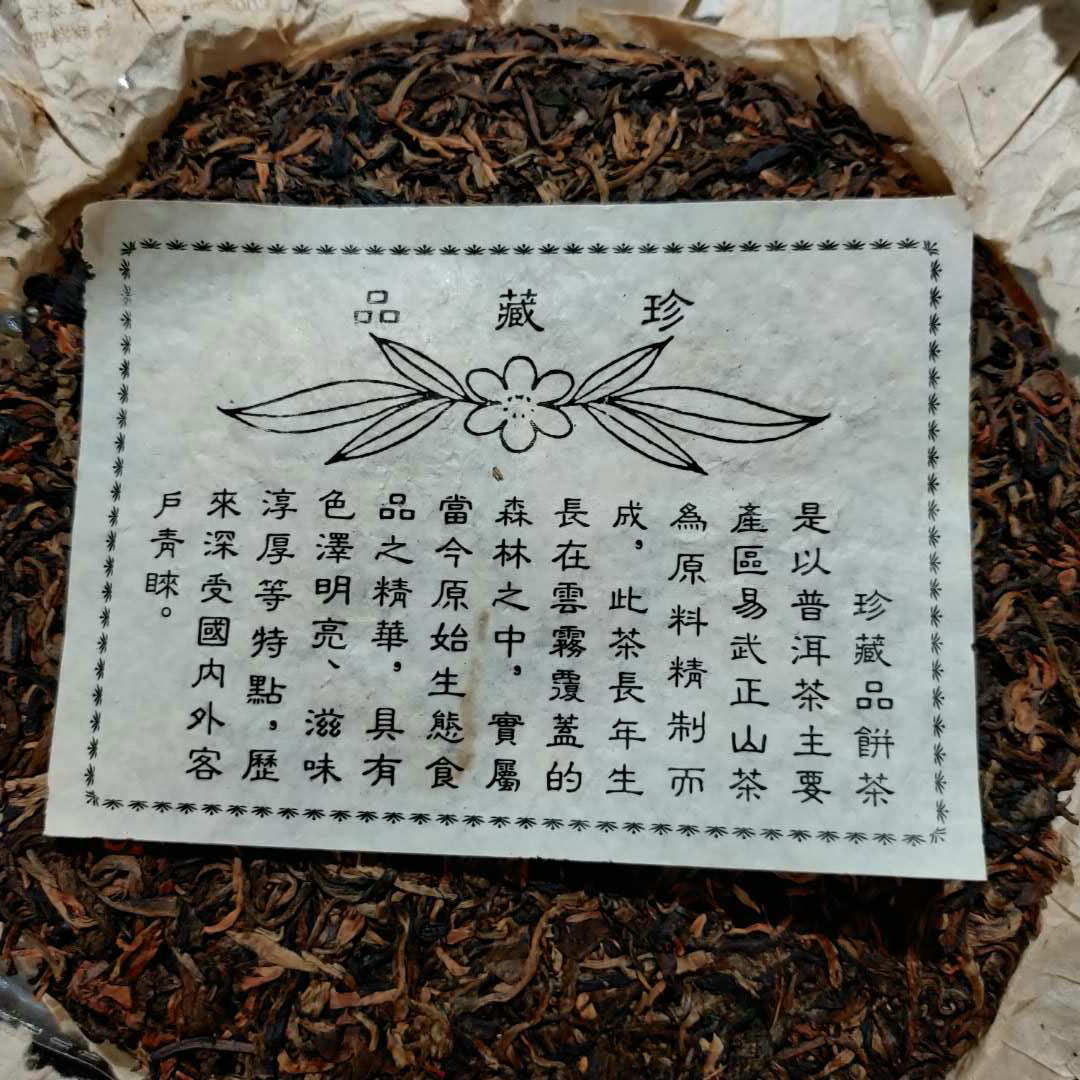 珍藏品
珍藏品餅茶
是以普洱茶主要
產區易武正山茶
為原料精制而
成，此茶長年生
長在雲霧覆蓋的
森林之中，實屬
當今原始生態食
品之精華，具有
色澤明亮、滋味
淳厚等特點，歷
來深受國內外客
戶青睞。